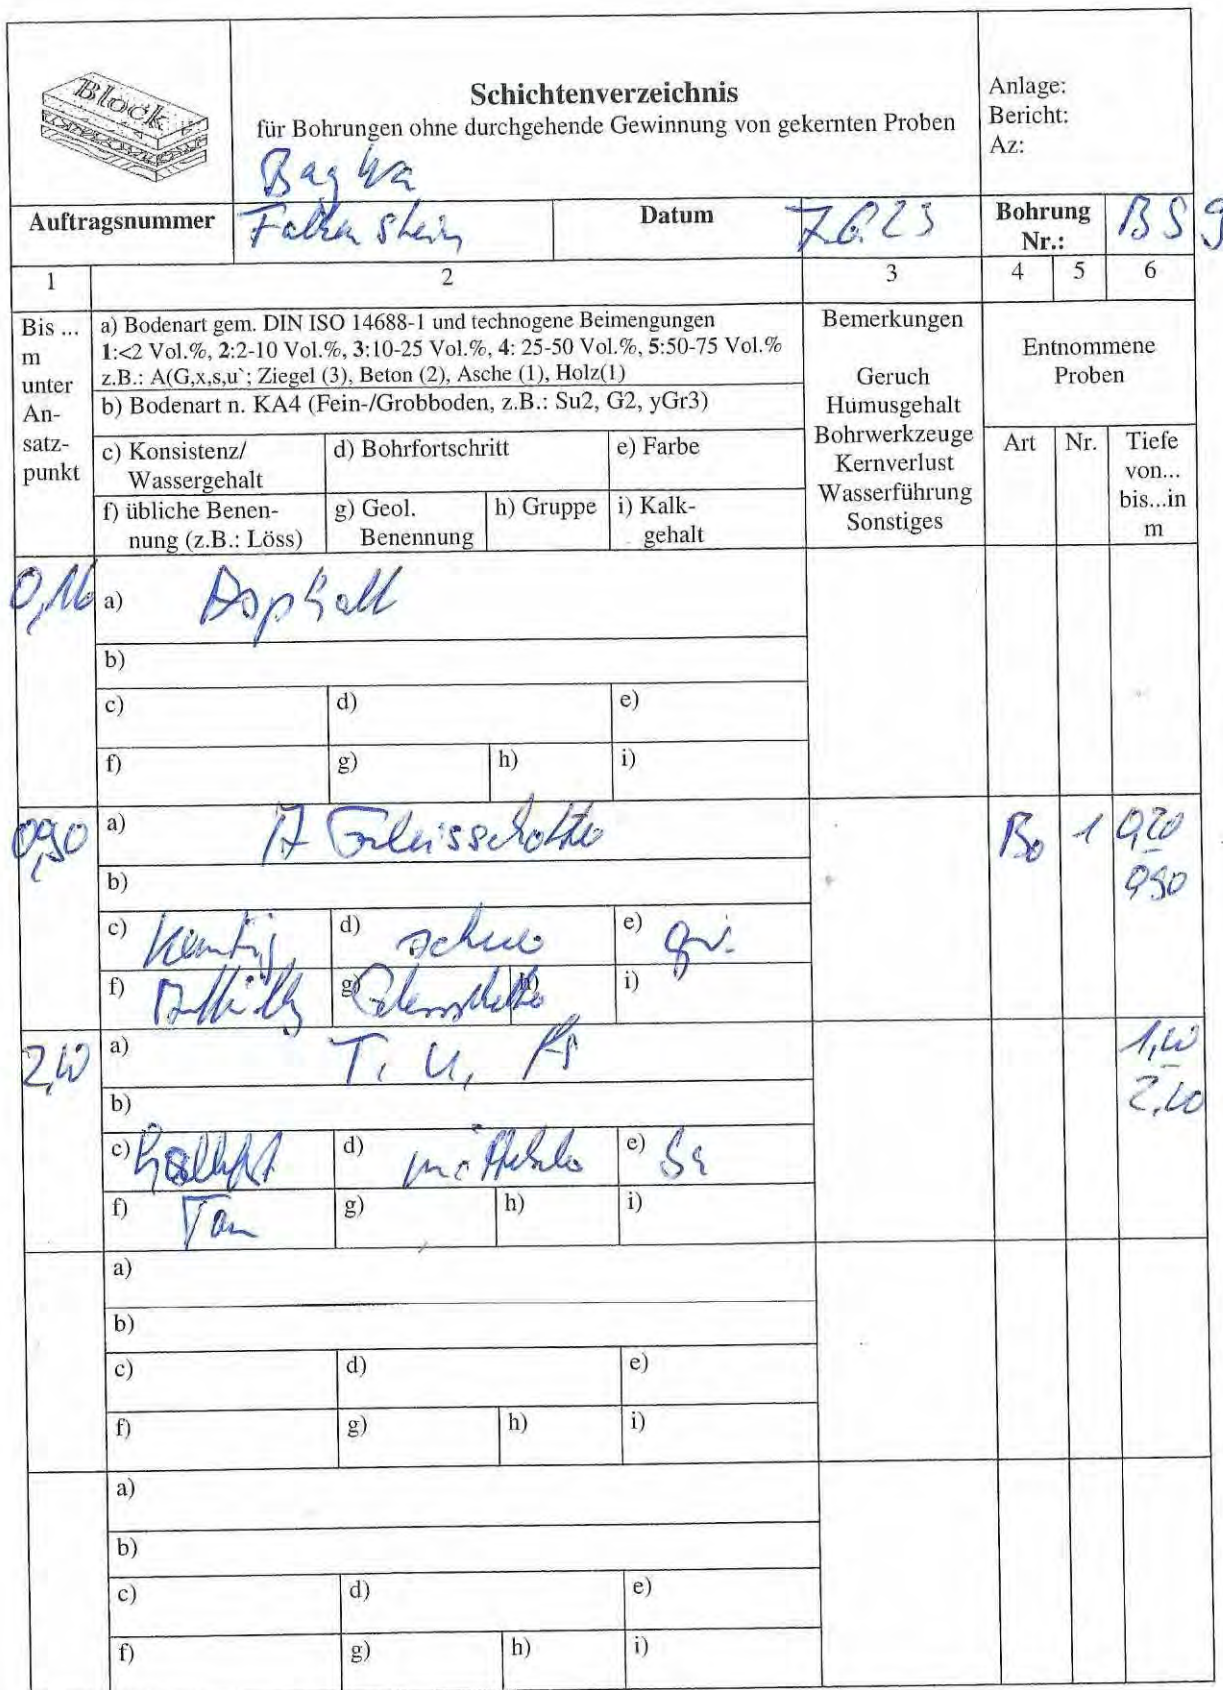 Block
Schichtenverzeichnis
für Bohrungen ohne durchgehende Gewinnung von gekernten Proben
Anlage:
Bericht:
Az:
Auftragsnummer
Falkenstein
Datum
7.6.23
Bohrung
Nr.:
BS 9
1
2
3
4
5
6
Bis ...
m
unter
An-
satz-
punkt
a) Bodenart gem. DIN ISO 14688-1 und technogene Beimengungen
1:<2 Vol.%, 2:2-10 Vol.%, 3:10-25 Vol.%, 4: 25-50 Vol.%, 5:50-75 Vol.%
z.B.: A(G,x,s,u`; Ziegel (3), Beton (2), Asche (1), Holz(1)
b) Bodenart n. KA4 (Fein-/Grobboden, z.B.: Su2, G2, yGr3)
c) Konsistenz/
Wassergehalt
d) Bohrfortschritt
e) Farbe
f) übliche Benen-
nung (z.B.: Löss)
g) Geol.
Benennung
h) Gruppe
i) Kalk-
gehalt
Bemerkungen
Geruch
Humusgehalt
Bohrwerkzeuge
Kernverlust
Wasserführung
Sonstiges
Entnommene
Proben
Art
Nr.
Tiefe
von...
bis...in
m
0,16
a) Asphalt
b)
c)
d)
e)
f)
g)
h)
i)
0,90
a) A Gleisschotter
b)
c) kantig
d) schwer
e) gr.
f)
g) Gleisschotter
h)
i)
Bo
1
0,20
0,90
a) T, U, fs
b)
c) halbfest
d) mittel
e)
f) Ton
g)
h)
i)
a)
b)
c)
d)
e)
f)
g)
h)
i)
a)
b)
c)
d)
e)
f)
g)
h)
i)